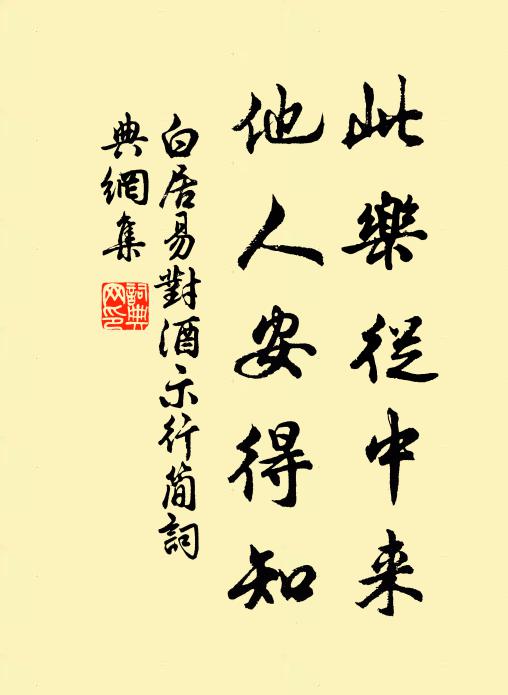 此樂從中来
他人安得知
白居易對酒示行簡詞
典網集
詞典
网印